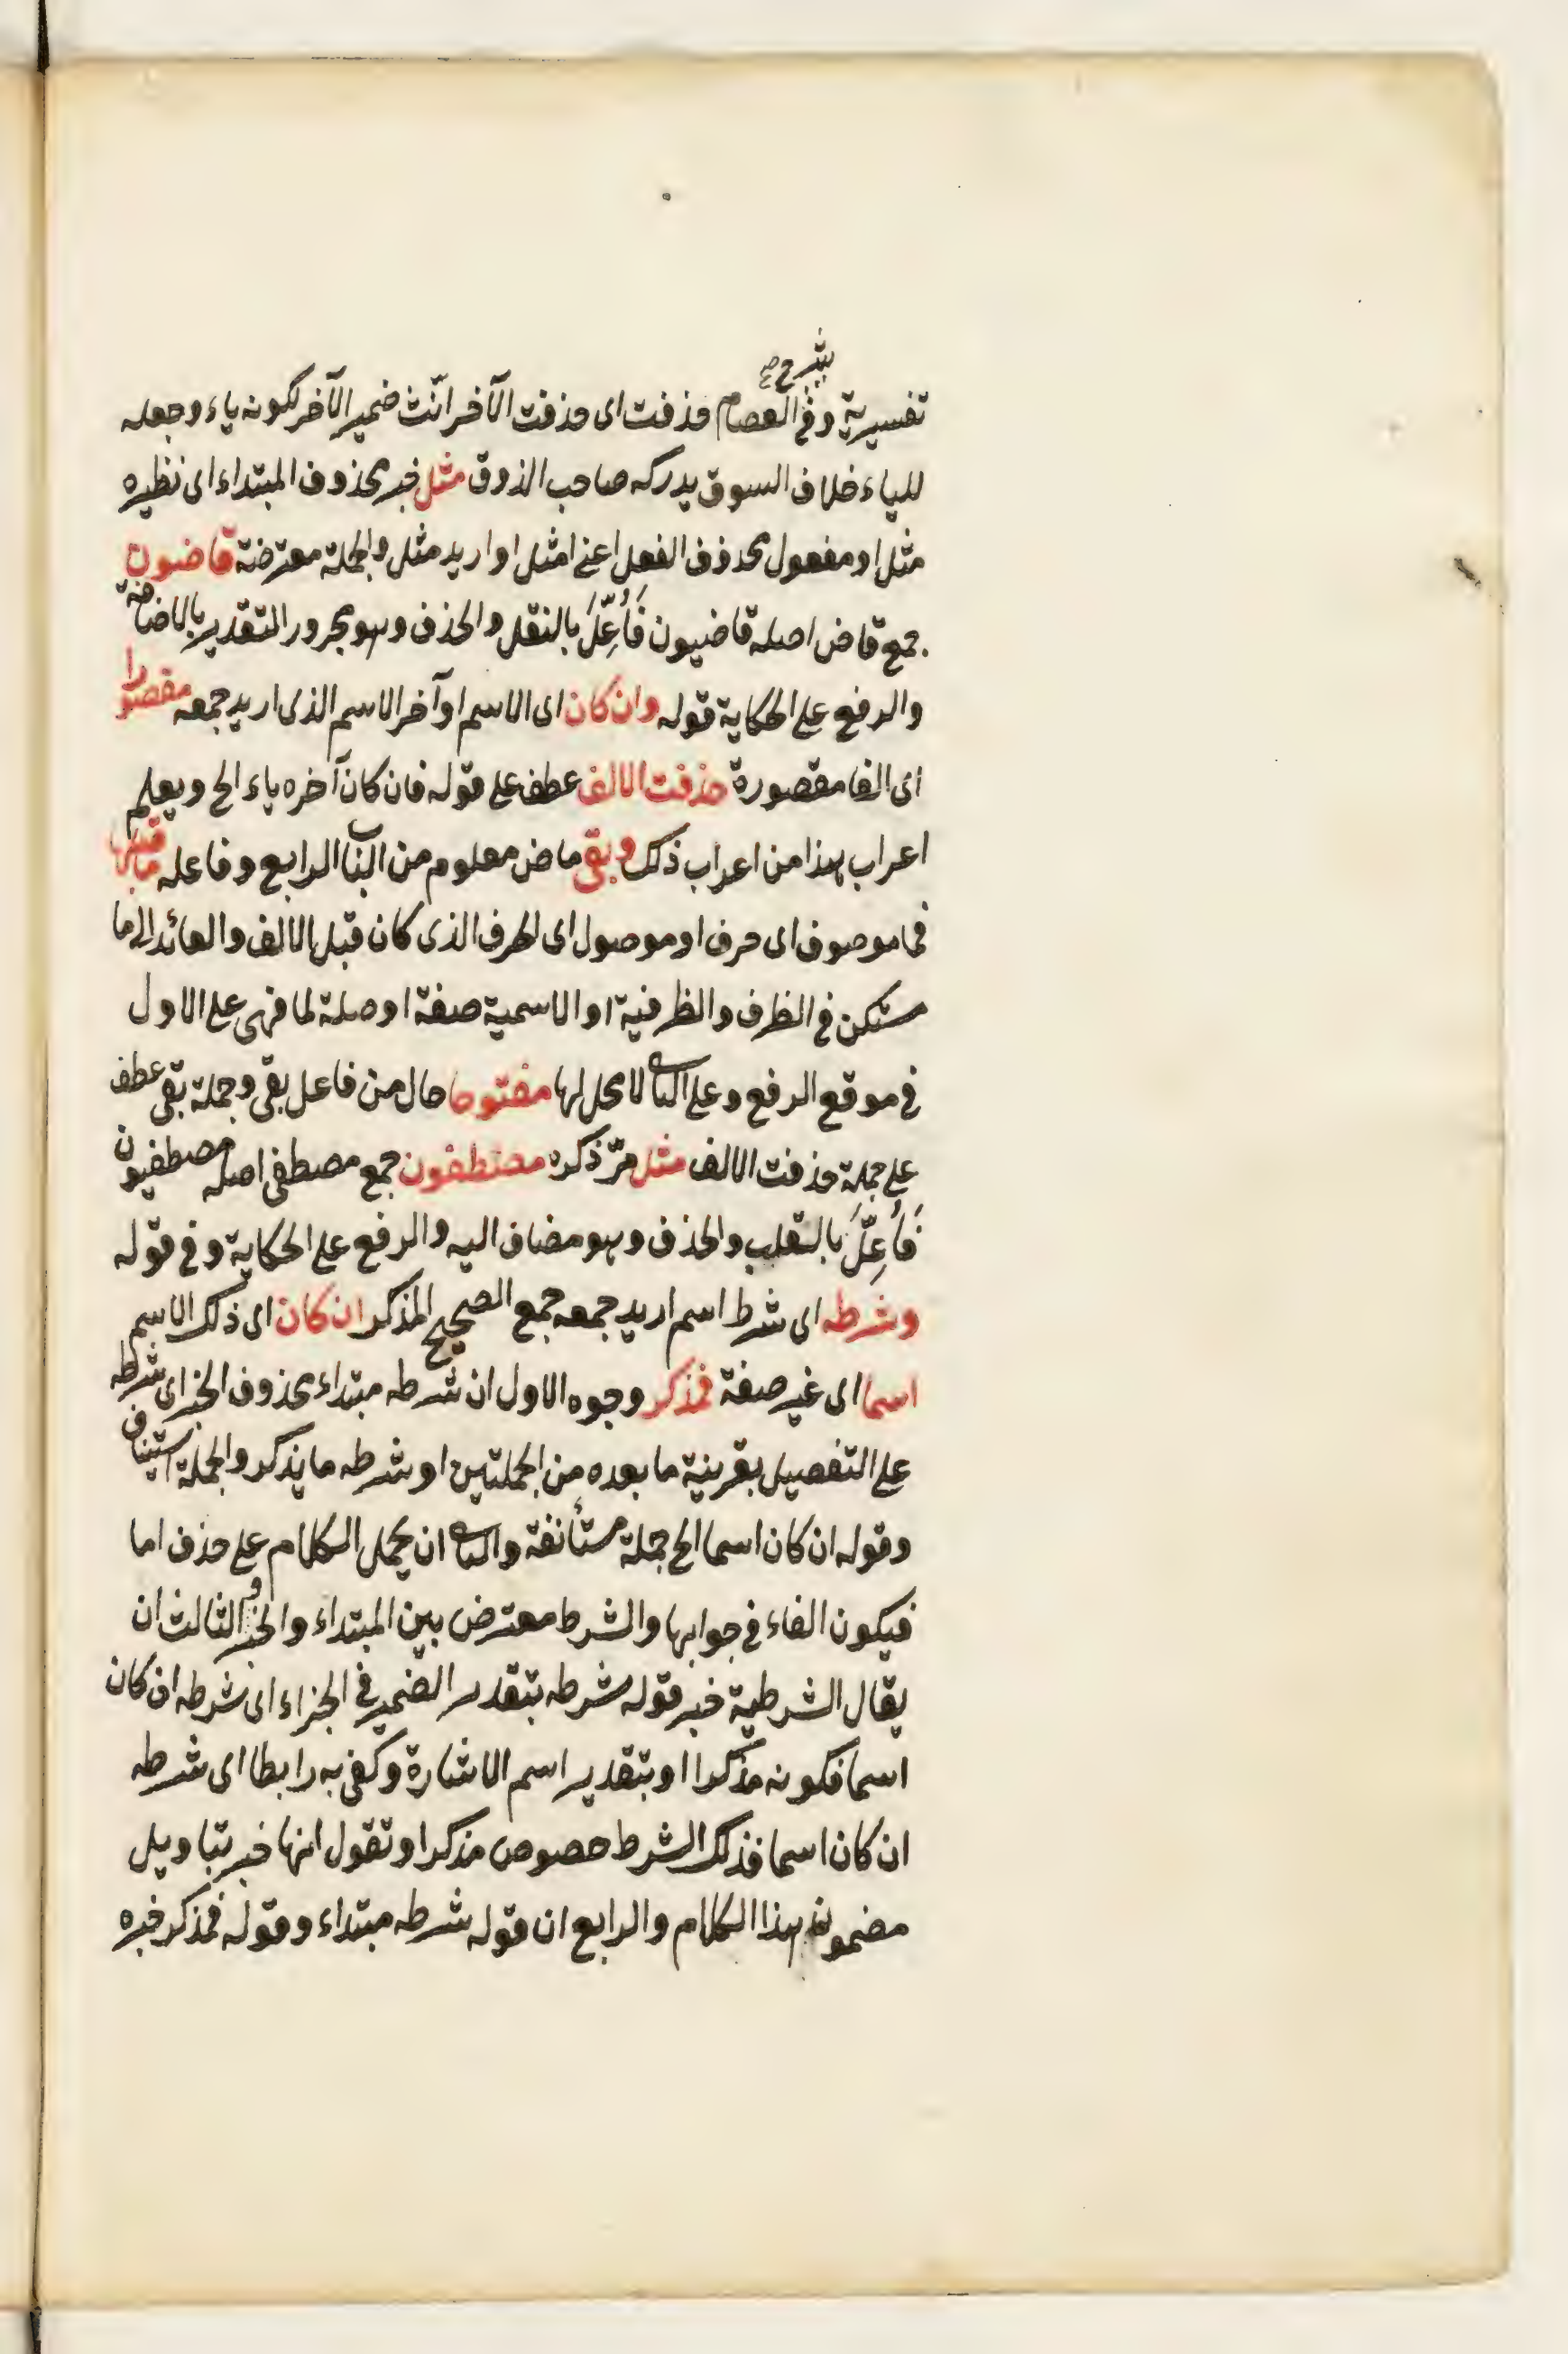 شرح صح
تفسيرية وفى العصام حذفت اى حذفت الآخر انّث ضمير الآخر لكونه ياء وجعله
للياء خلاف السوق يدركه صاحب الذوق مثل خبر محذوف المبتداء اى نظيره
مثل او مفعول محذوف الفعل اعنى امثل او اريد مثل والجملة معترضة قاضون
جمع قاض اصله قاضيون فَأُعِلَّ بالنقل والحذف وهو مجرور التقدير بالاضافة
والرفع على الحكاية قوله وان كان اى الاسم او آخر الاسم الذى اريد جمعه مقصورا
اى الفا مقصورة حذفت الالف عطف على قوله فان كان آخره ياء الخ ويعلم
اعراب هذا من اعراب ذلك وبقى ماض معلوم من الباب الرابع وفاعله ما قبلها
فما موصوف اى حرف او موصول اى الحرف الذى كان قبل الالف والعائد الى ما
مستكن فى الظرف والظرفية او الاسمية صفة او صلة لما فهى على الاول
فى موقع الرفع وعلى الثانى لا محل لها مفتوحا حال من فاعل بقى وجملة بقى عطف
على جملة حذفت الالف مثل مرّ ذكره مصطفون جمع مصطفى اصله مصطفيون
فَأُعِلَّ بالقلب والحذف وهو مضاف اليه والرفع على الحكاية وفى قوله
وشرطه اى شرط اسم اريد جمعه جمع الصحيح المذكر ان كان اى ذلك الاسم
اسما اى غير صفة فمذكر وجوه الاول ان شرطه مبتداء محذوف الخبر اى شرطه
على التفصيل بقرينة ما بعده من الجملتين او شرطه ما يذكر والجملة استيناف
وقوله ان كان اسما الخ جملة مستأنفة والثانى ان يحمل الكلام على حذف اما
فيكون الفاء فى جوابها والشرط معترض بين المبتداء والخبر و الثالث ان
يقال الشرطية خبر قوله شرطه بتقدير الضمير فى الجزاء اى شرطه ان كان
اسما فكونه مذكرا او بتقدير اسم الاشارة وكفى به رابطا اى شرطه
ان كان اسما فذلك الشرط حصوص مذكرا وتقول انها خبر بتاويل
مضمونه هذا الكلام والرابع ان قوله شرطه مبتداء وقوله فمذكر خبره